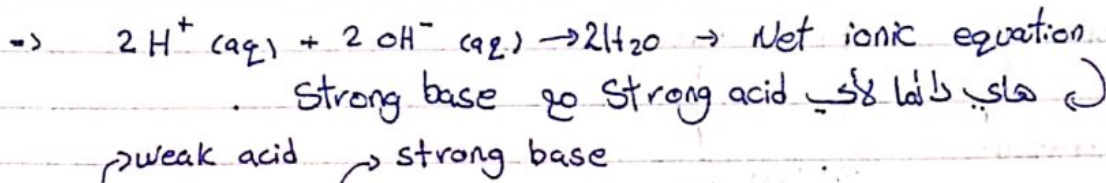 => 2 H⁺ (aq) + 2 OH⁻ (aq) → 2H₂O → Net ionic equation
هاي دائما لأي Strong acid مع Strong base .
weak acid → strong base